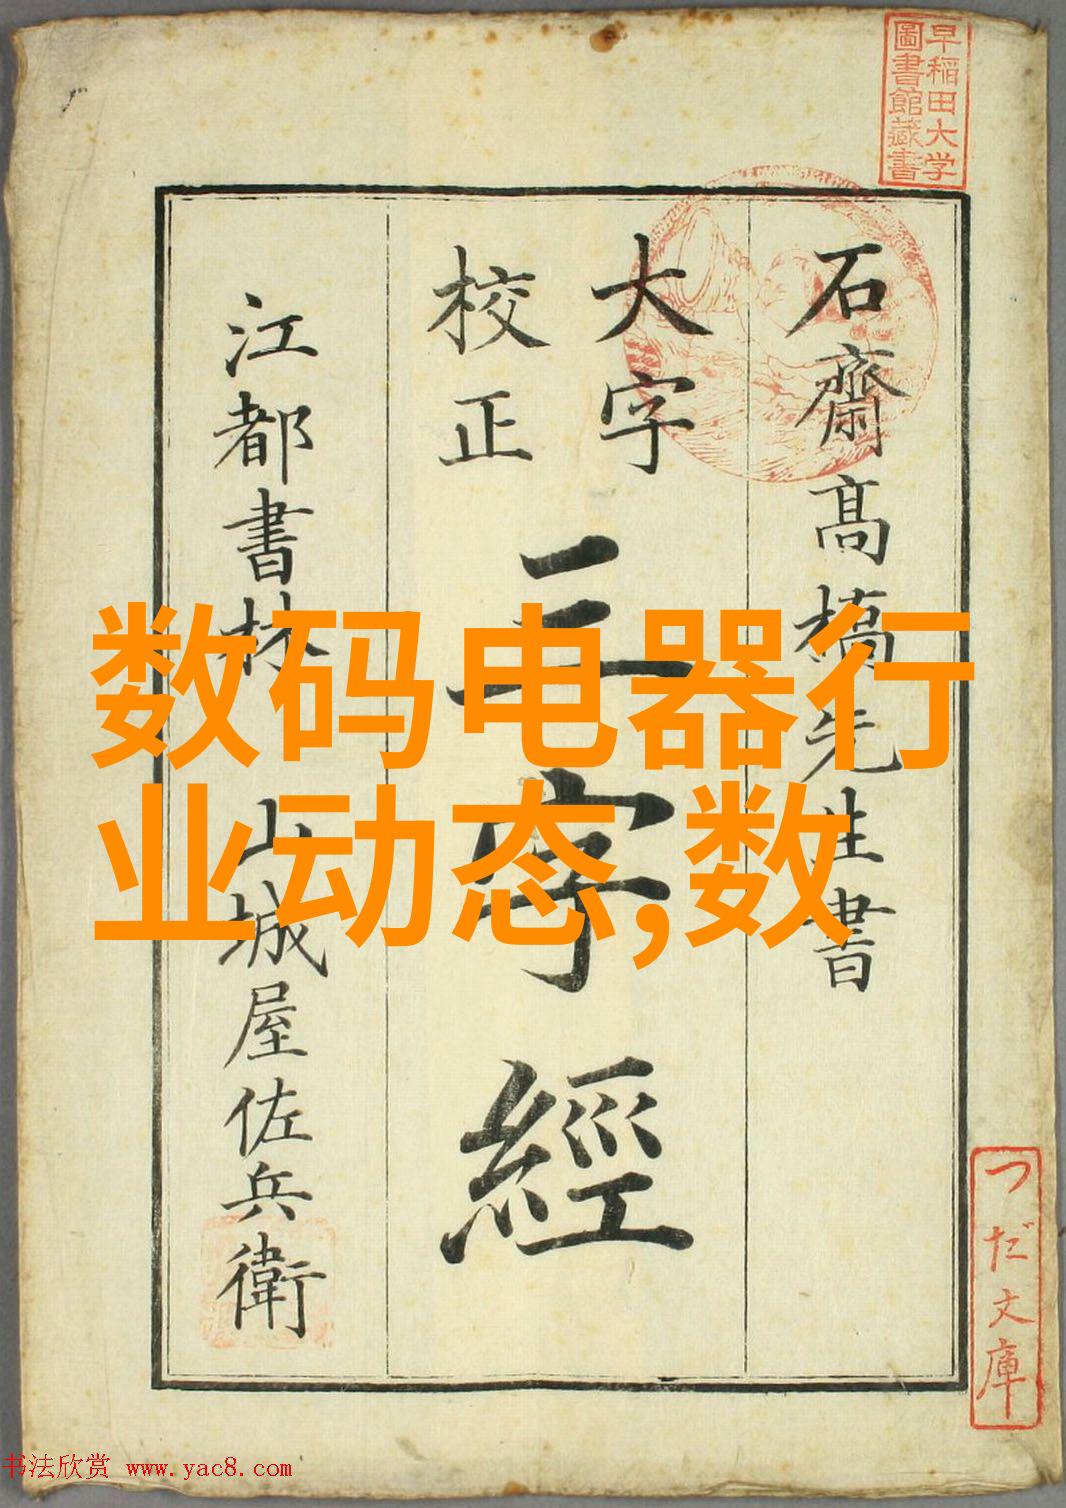 早稲田大学
圖書館藏書
石齋髙槗先生書
大字
校正
三字經
江都書林 山城屋佐兵衛
数码电器行
业动态,数
つだ文庫
书法欣赏 www.yac8.com